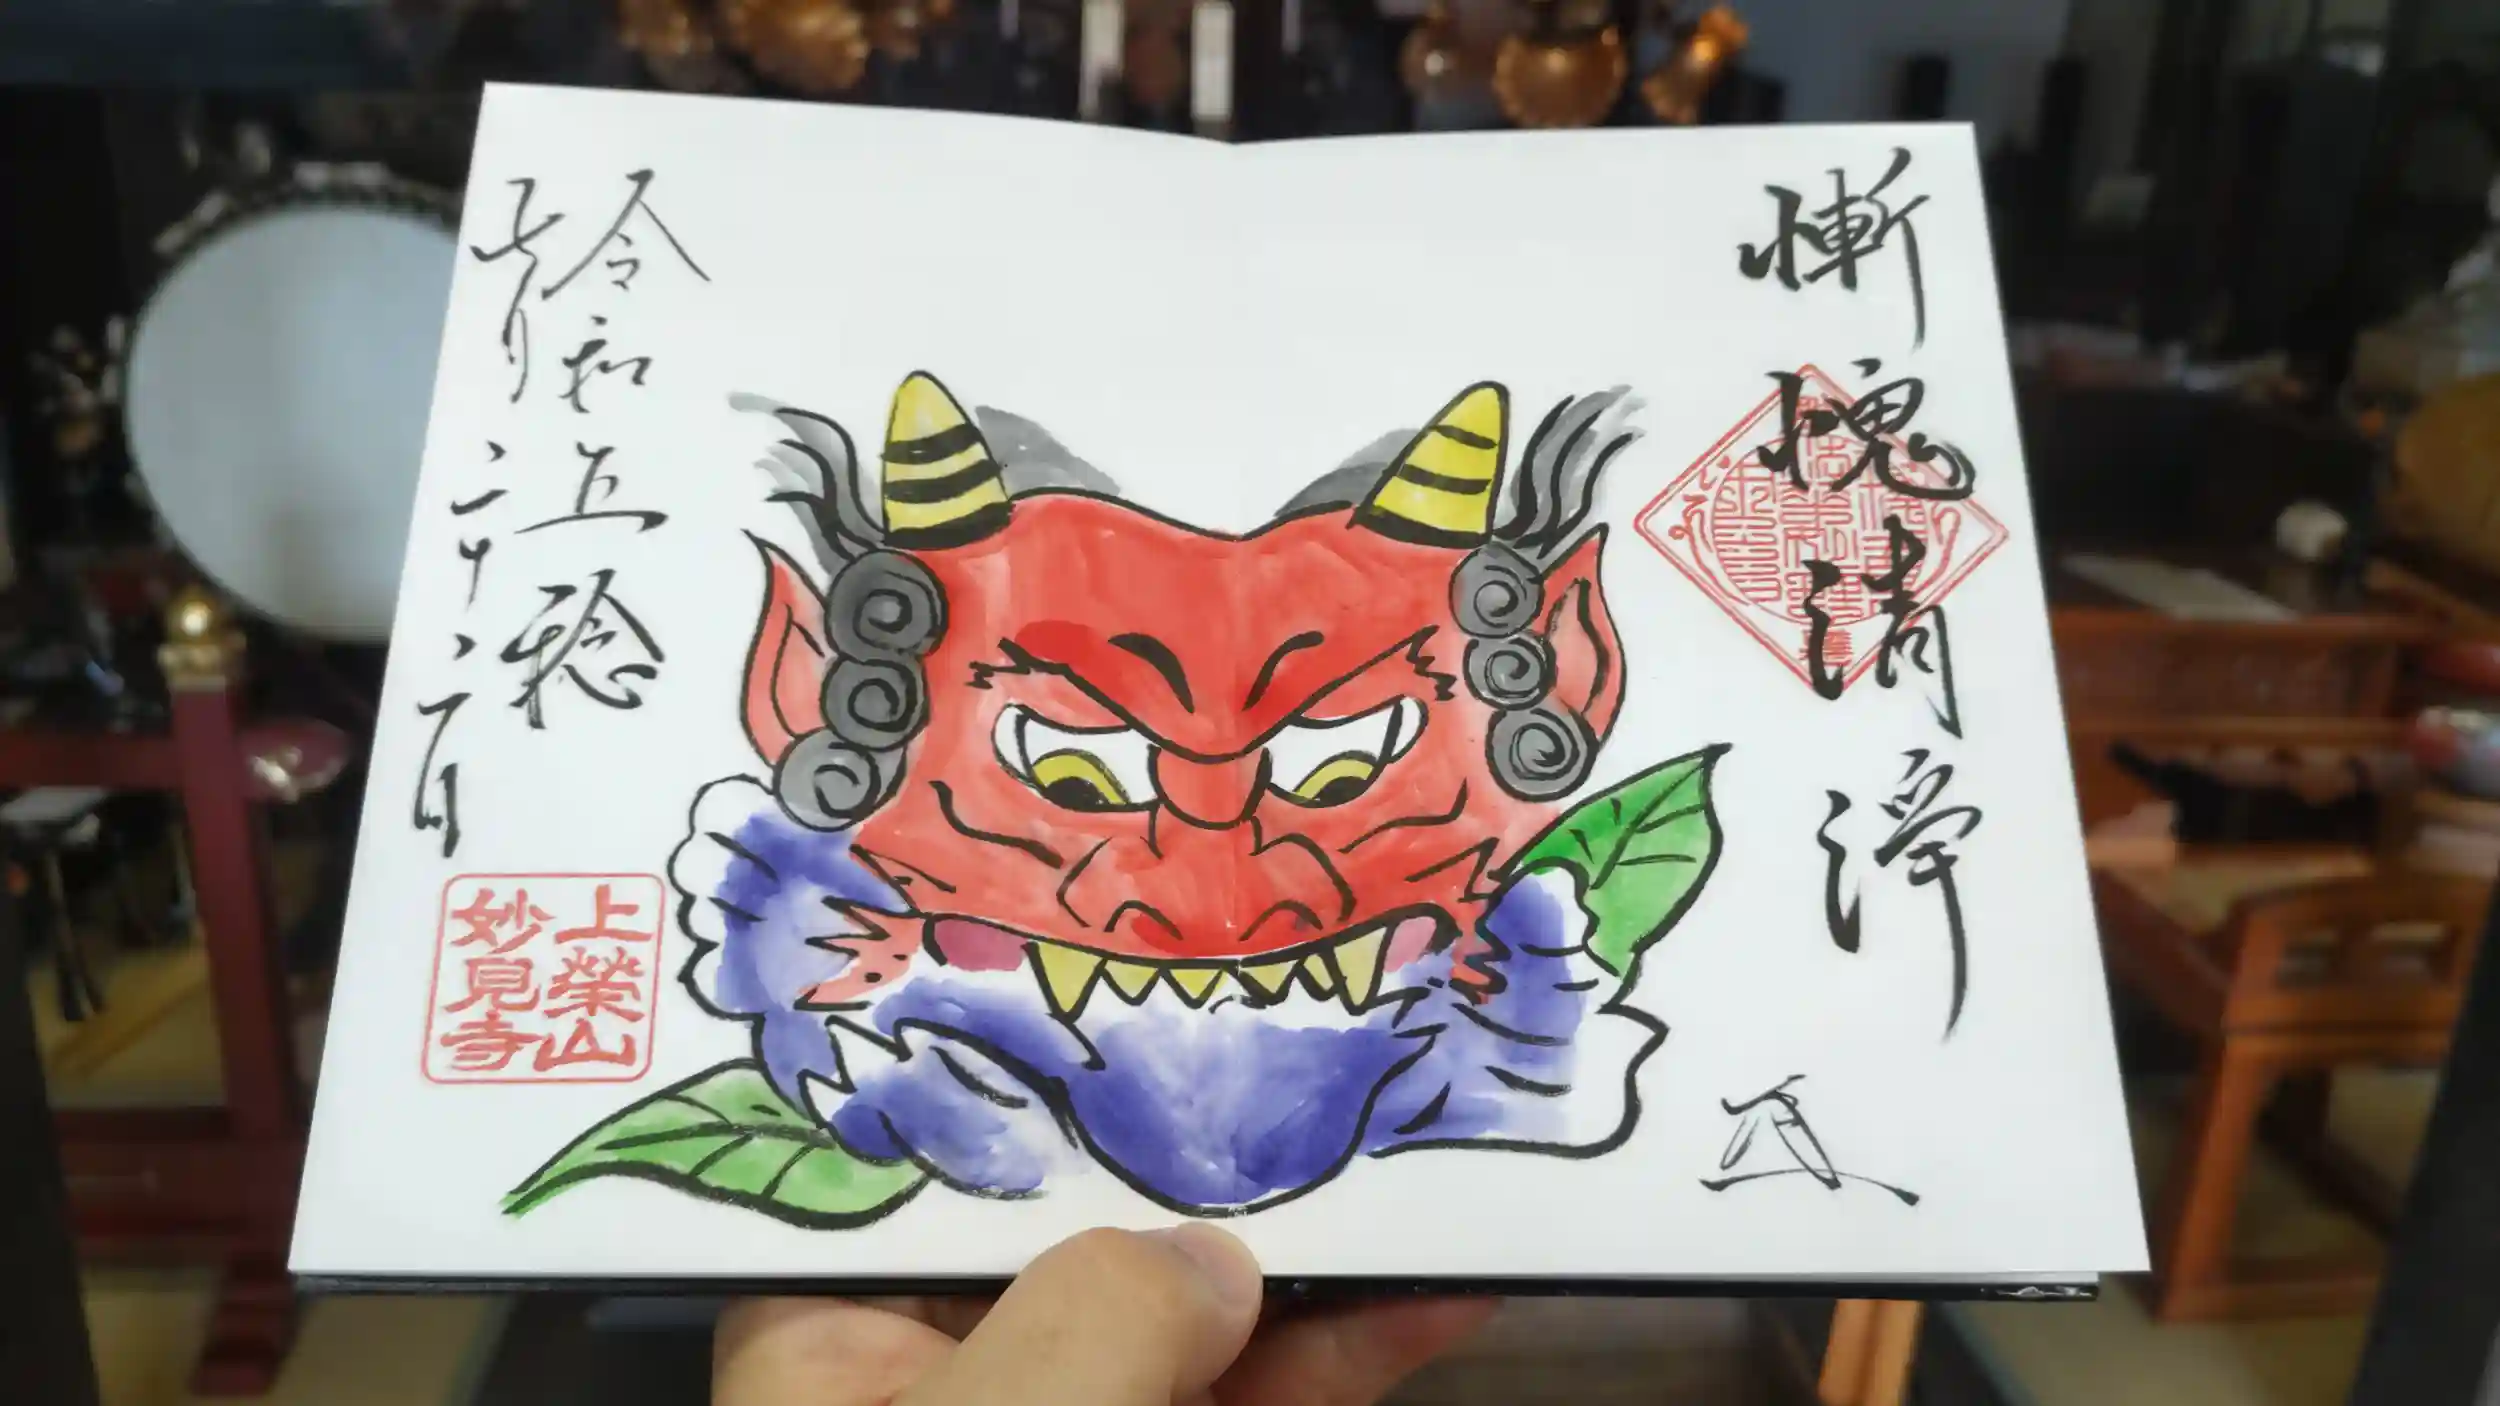 慚愧清浄
令和五稔
七月二十二日
上榮山
妙見寺